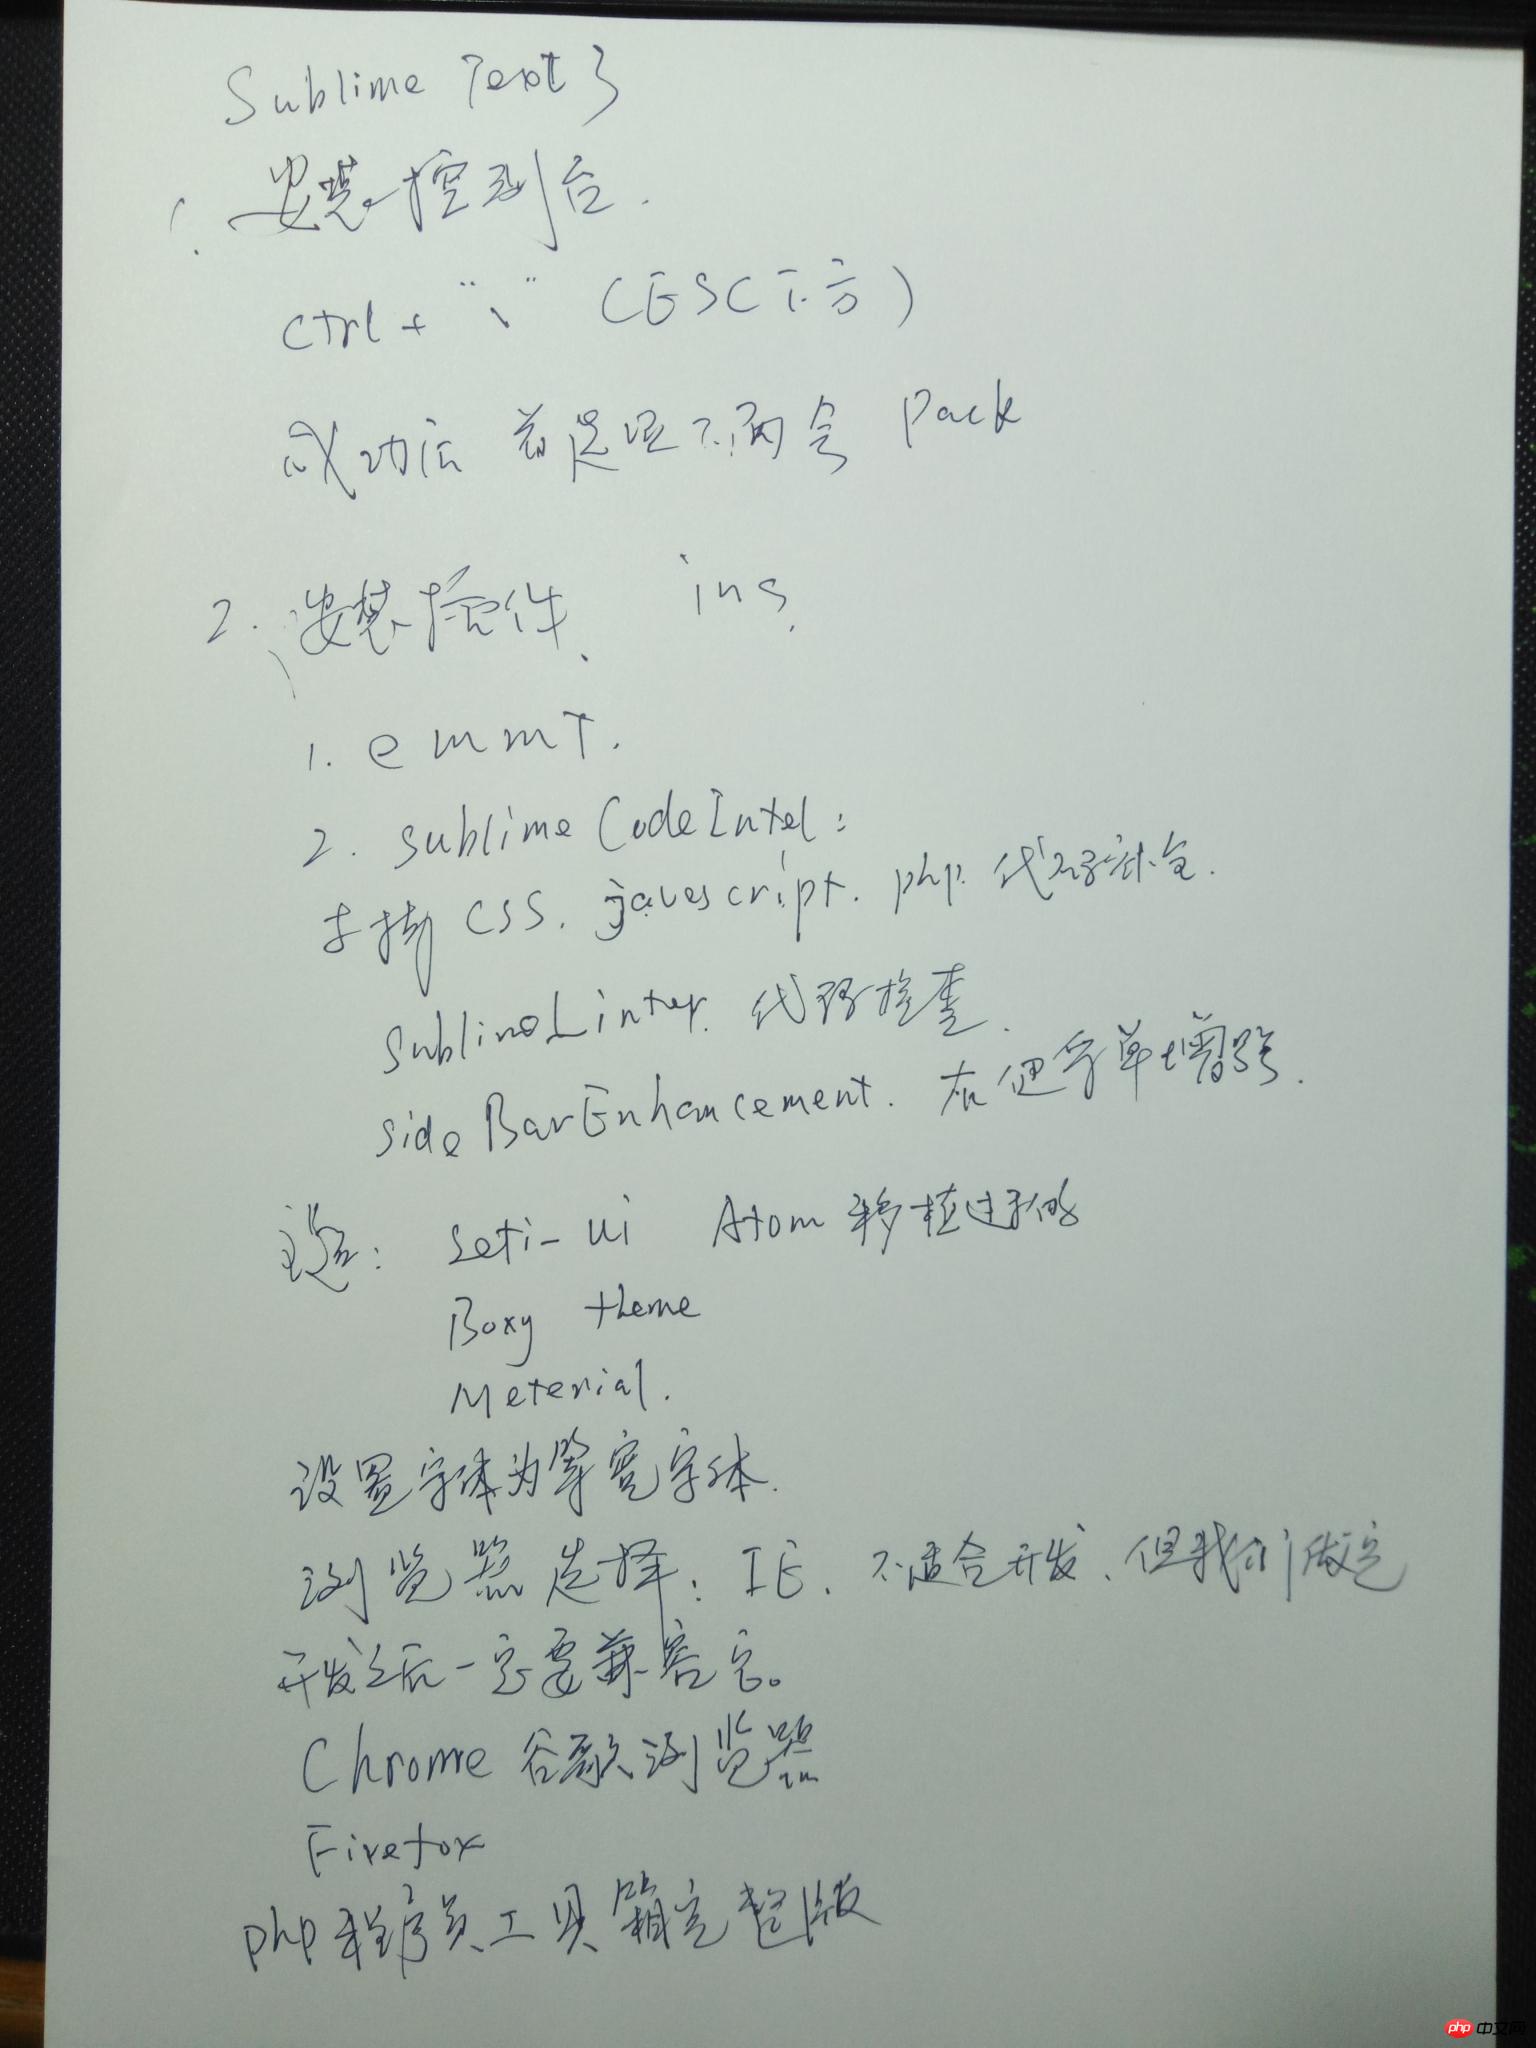 Sublime Text 3
1. 安装控制台.
Ctrl + "、" (ESC下方)
成功后 首选里 会 Pack
2. 安装控件. ins.
1. emmT.
2. sublime CodeIntel:
支持 CSS. javascript. php. 代码补全.
SublimeLinter. 代码检查.
side BarEnhancement. 右键菜单增强.
主题: Seti-Ui Atom 移植过来的
Boxy theme
Meterial.
设置字体为等宽字体.
浏览器选择: IE. 不适合开发、但我们做完
开发之后一定要兼容它。
Chrome 谷歌浏览器
Firefox
php程序员工具箱完整版
php 中文网